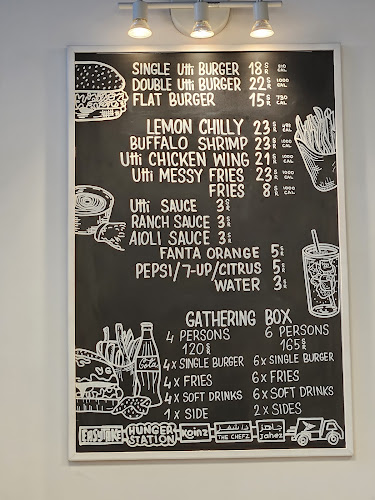 SINGLE Utti BURGER 18 SR 510 CAL
DOUBLE Utti BURGER 22 SR 1000 CAL
FLAT BURGER 15 SR 730 CAL
LEMON CHILLY 23 SR CAL
BUFFALO SHRIMP 23 SR 1000 CAL
Utti CHICKEN WING 21 SR 1000 CAL
Utti MESSY FRIES 23 SR 1000 CAL
FRIES 8 SR 1000 CAL
Utti SAUCE 3 SR
RANCH SAUCE 3 SR
AIOLI SAUCE 3 SR
FANTA ORANGE 5 SR
PEPSI/7-UP/CITRUS 5 SR
WATER 3 SR
GATHERING BOX
4 PERSONS
120 SR
4x SINGLE BURGER
4x FRIES
4x SOFT DRINKS
1x SIDE
6 PERSONS
165 SR
6x SINGLE BURGER
6x FRIES
6x SOFT DRINKS
2x SIDES
Cola
HUNGER
STATION
Koinz
ذا شفز
THE CHEFZ
جاهز
Jahez